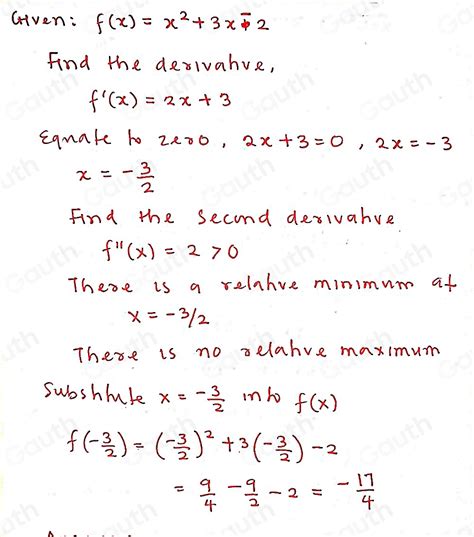 Given: f(x) = x² + 3x - 2
Find the derivative,
f'(x) = 2x + 3
Equate to zero, 2x + 3 = 0, 2x = -3
x = -3/2
Find the second derivative
f"(x) = 2 > 0
There is a relative minimum at
x = -3/2
There is no relative maximum
Substitute x = -3/2 into f(x)
f(-3/2) = (-3/2)² + 3(-3/2) - 2
= 9/4 - 9/2 - 2 = -17/4